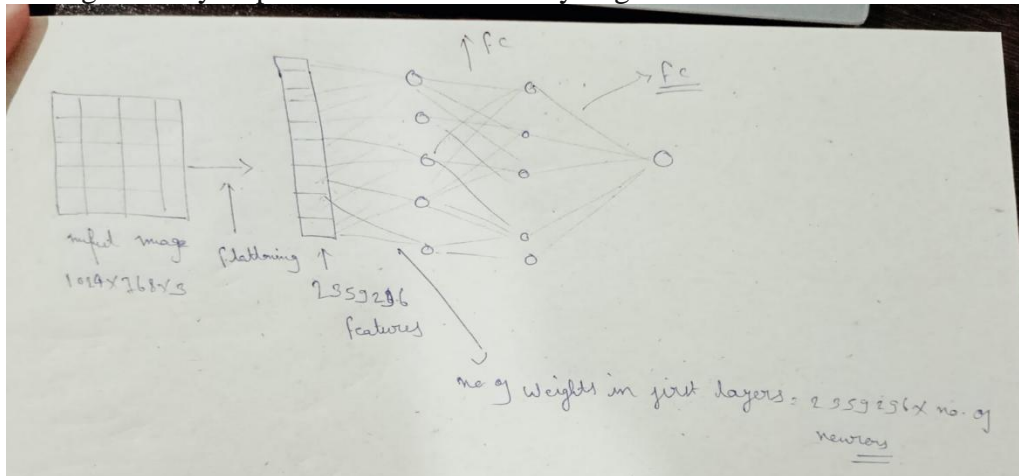 ↑ fc
→ fc
input image
1024×768×3
flattening
2359296
features
no of weights in first layers = 2359296× no. of
neurons